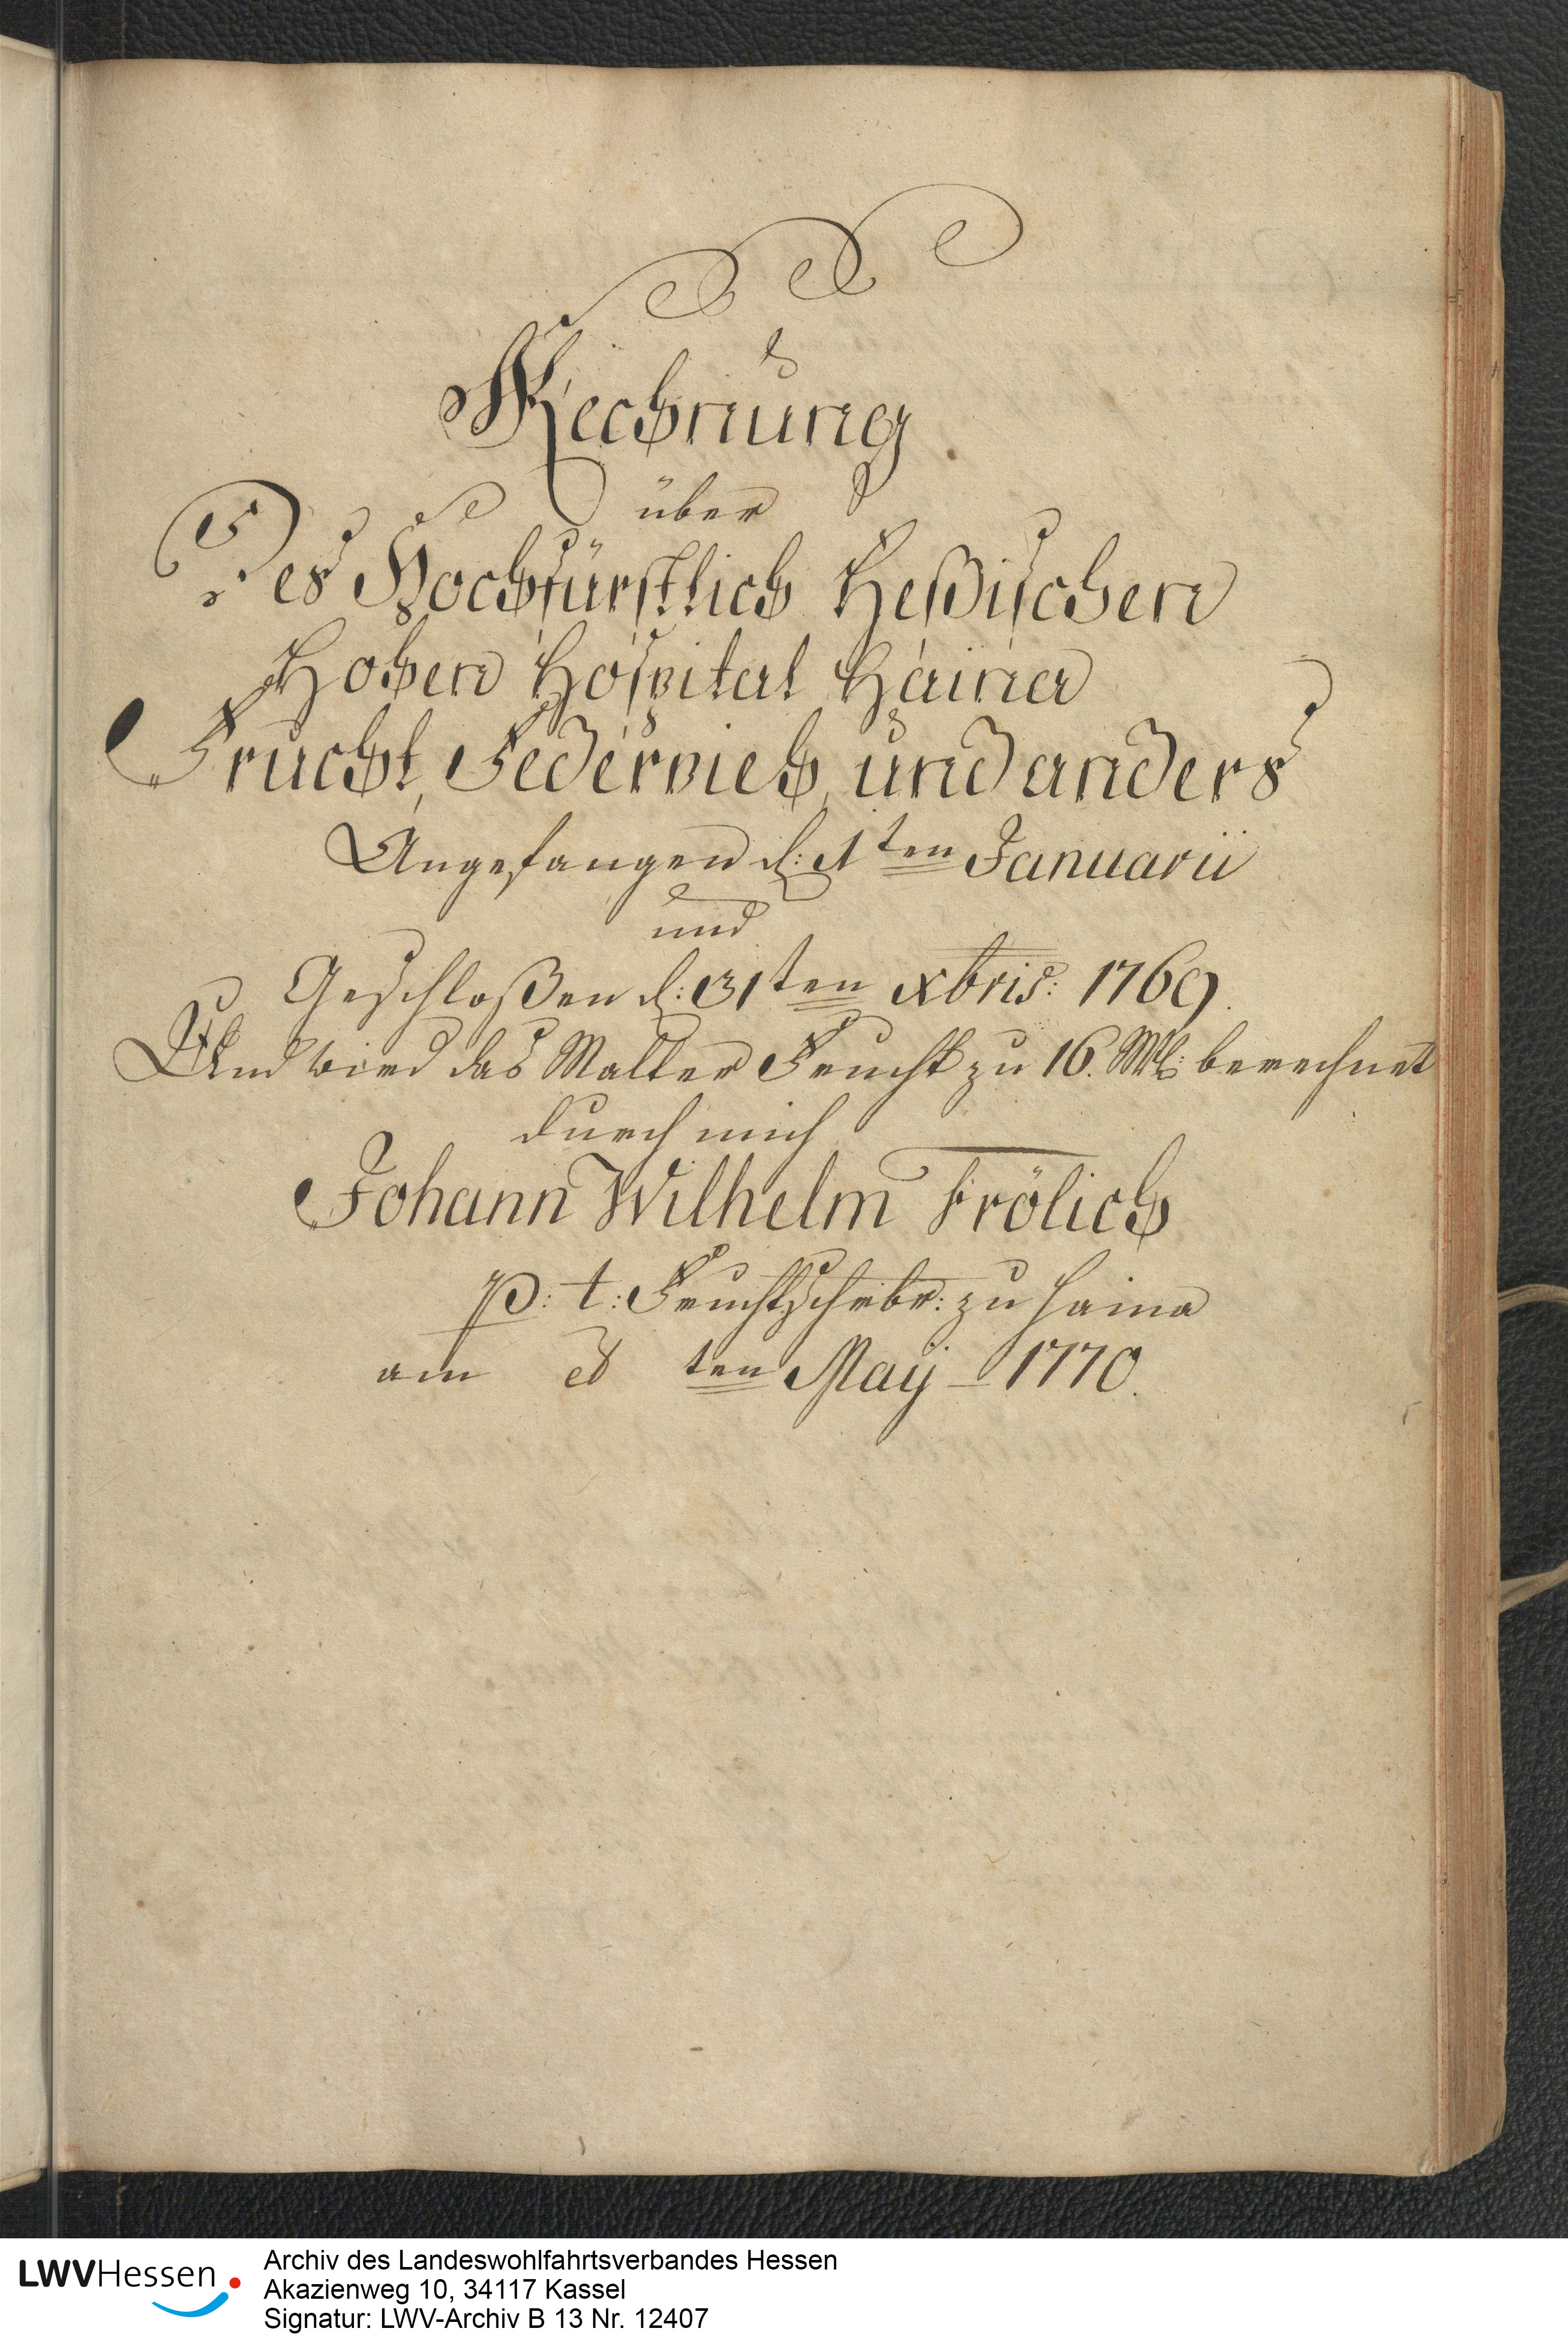 Rechnung
über
Des Hochfürstlich Heßischen
Hohen Hospital Haina
Frucht, Federvieh, und anders
Angefangen d: 1ten Januarii
und
Geschloßen d: 31ten xbris: 1769.
Und wird das Malter Frucht zu 16. Mt: berechnet
durch mich
Johann Wilhelm Frölich
p: t: Fruchtschrbr: zu Haina
am ten May 1770.
LWVHessen
Archiv des Landeswohlfahrtsverbandes Hessen
Akazienweg 10, 34117 Kassel
Signatur: LWV-Archiv B 13 Nr. 12407